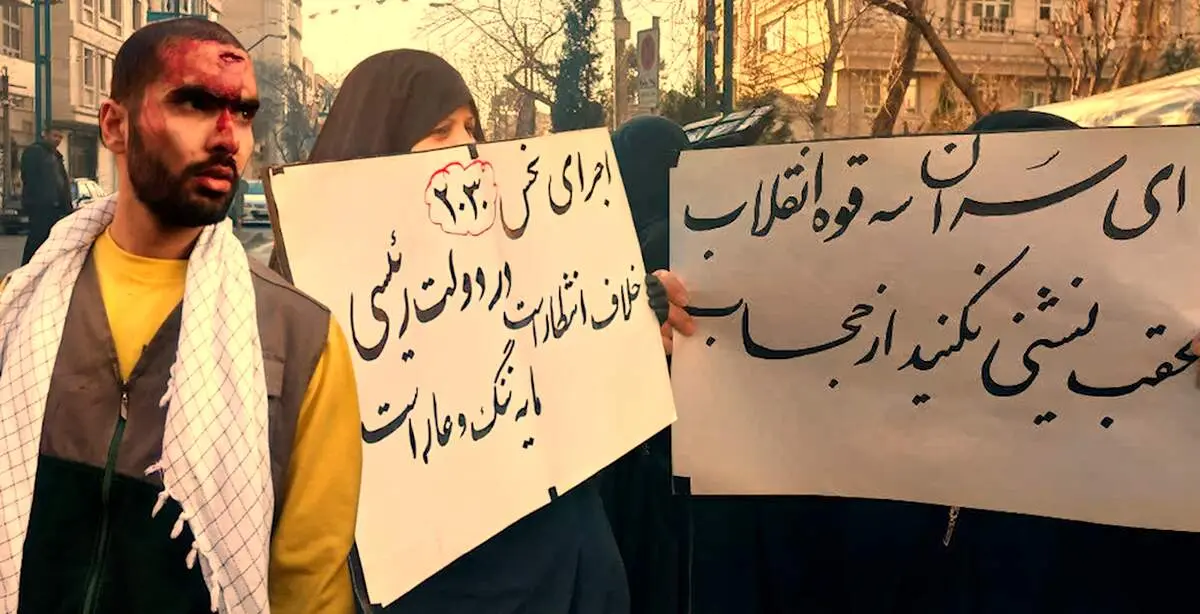 ای سران سه قوه انقلاب
عقب نشینی نکنید از حجاب
اجرای بخش ۲۰۳۰
خلاف انتظار است در دولت رئیسی
مایه ننگ و عار است